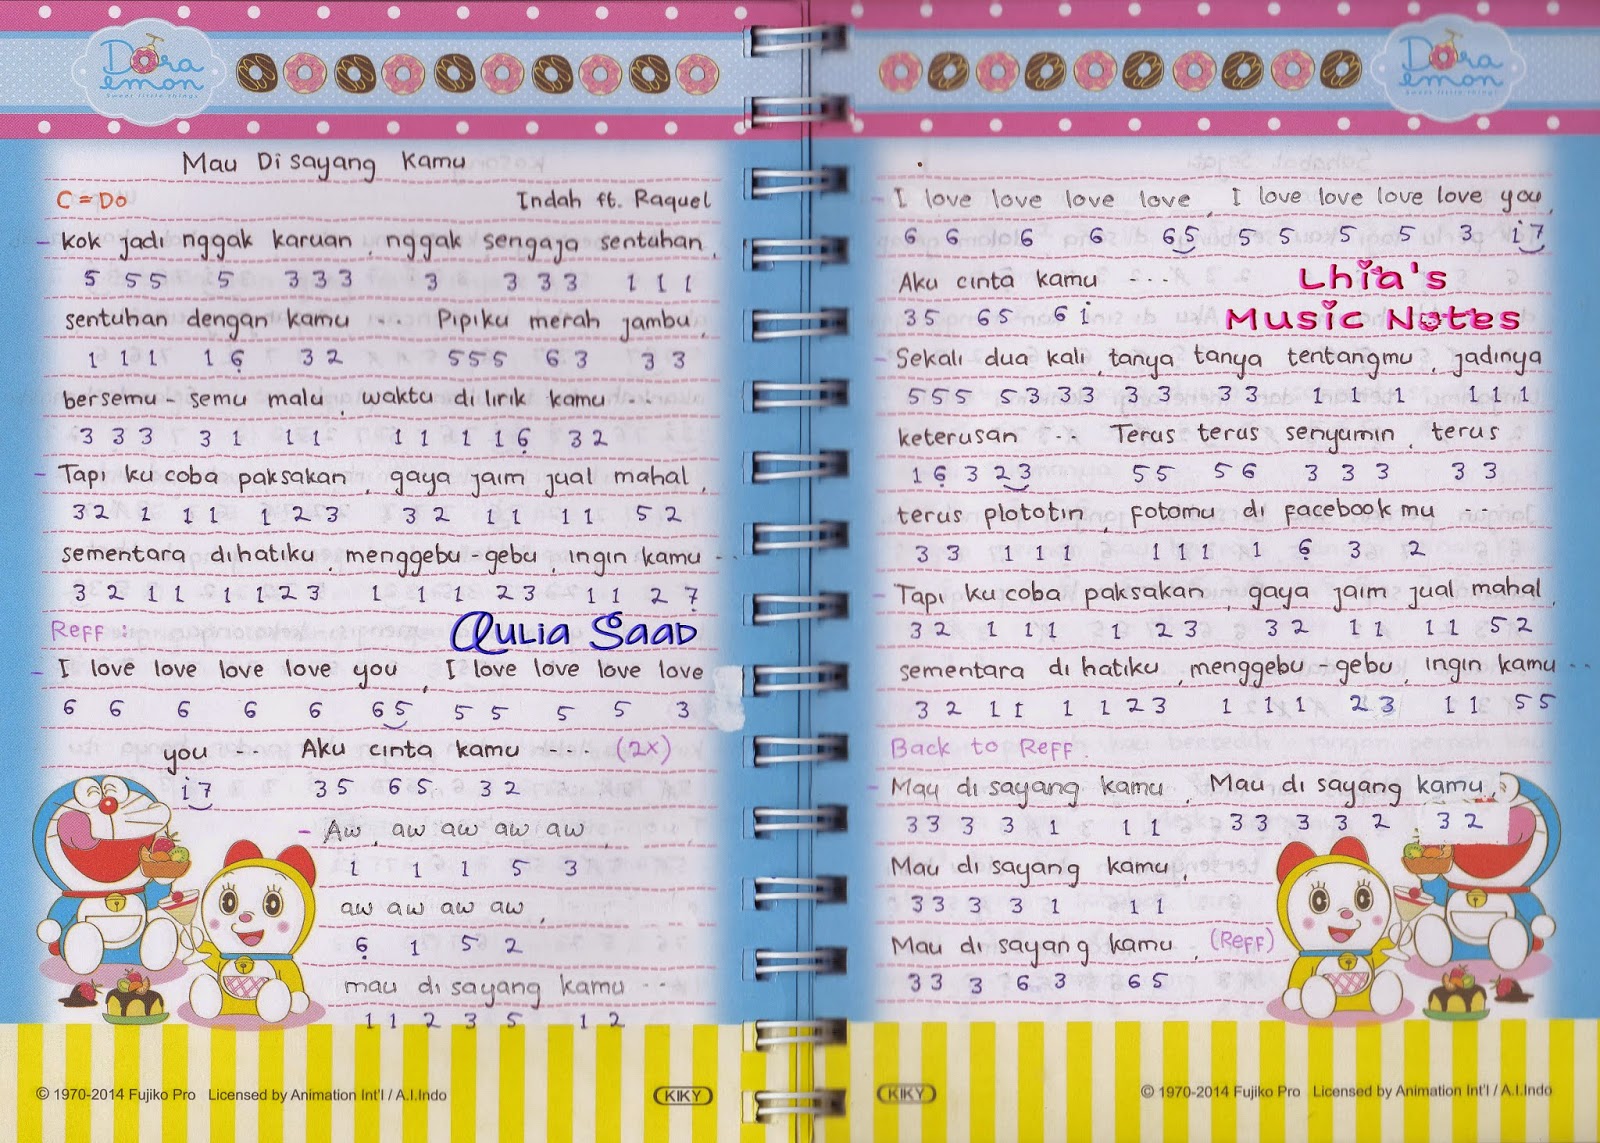 Dora
emon
Sweet little things
Mau Di sayang Kamu
C = Do Indah ft. Raquel
- kok jadi nggak karuan, nggak sengaja sentuhan,
5 5 5 5 3 3 3 3 3 3 3 1 1 1
sentuhan dengan kamu ... Pipiku merah jambu,
1 1 1 1 6̣ 3 2 5 5 5 6 3 3 3
bersemu - semu malu, waktu di lirik kamu
3 3 3 3 1 1 1 1 1 1 1 6̣ 3 2
- Tapi ku coba paksakan, gaya jaim jual mahal,
3 2 1 1 1 1 2 3 3 2 1 1 1 1 5 2
sementara dihatiku, menggebu - gebu, ingin kamu ...
3 2 1 1 1 1 2 3 1 1 1 2 3 1 1 2 7̣
Reff : Aulia Saad
- I love love love love you, I love love love love
6 6 6 6 6 6 5 5 5 5 5 3
you ... Aku cinta kamu .... (2x)
i 7 3 5 6 5 3 2
- Aw, aw aw aw aw,
1 1 1 5 3
aw aw aw aw,
6̣ 1 5 2
mau di sayang kamu ..
1 1 2 3 5 1 2
© 1970-2014 Fujiko Pro Licensed by Animation Int'l / A.I.Indo
KIKY
Dora
emon
Sweet little things
- I love love love love, I love love love love you,
6 6 6 6 6 5 5 5 5 5 3 i 7
Aku cinta kamu ... Lhia's
3 5 6 5 6 i Music Notes
- Sekali dua kali, tanya tanya tentangmu, jadinya
5 5 5 5 3 3 3 3 3 3 3 1 1 1 1 1 1
keterusan ... Terus terus senyumin, terus
1 6̣ 3 2 3 5 5 5 6 3 3 3 3 3
terus plototin, fotomu di facebook mu ...
3 3 1 1 1 1 1 1 1 6̣ 3 2
- Tapi ku coba paksakan, gaya jaim jual mahal,
3 2 1 1 1 1 2 3 3 2 1 1 1 1 5 2
sementara di hatiku, menggebu - gebu, ingin kamu ...
3 2 1 1 1 1 2 3 1 1 1 2 3 1 1 5 5
Back to Reff.
- Mau di sayang kamu, Mau di sayang kamu,
3 3 3 3 1 1 1 3 3 3 3 2 3 2
Mau di sayang kamu,
3 3 3 3 1 1 1
Mau di sayang kamu, (Reff)
3 3 3 6 3 6 5
KIKY
© 1970-2014 Fujiko Pro Licensed by Animation Int'l / A.I.Indo